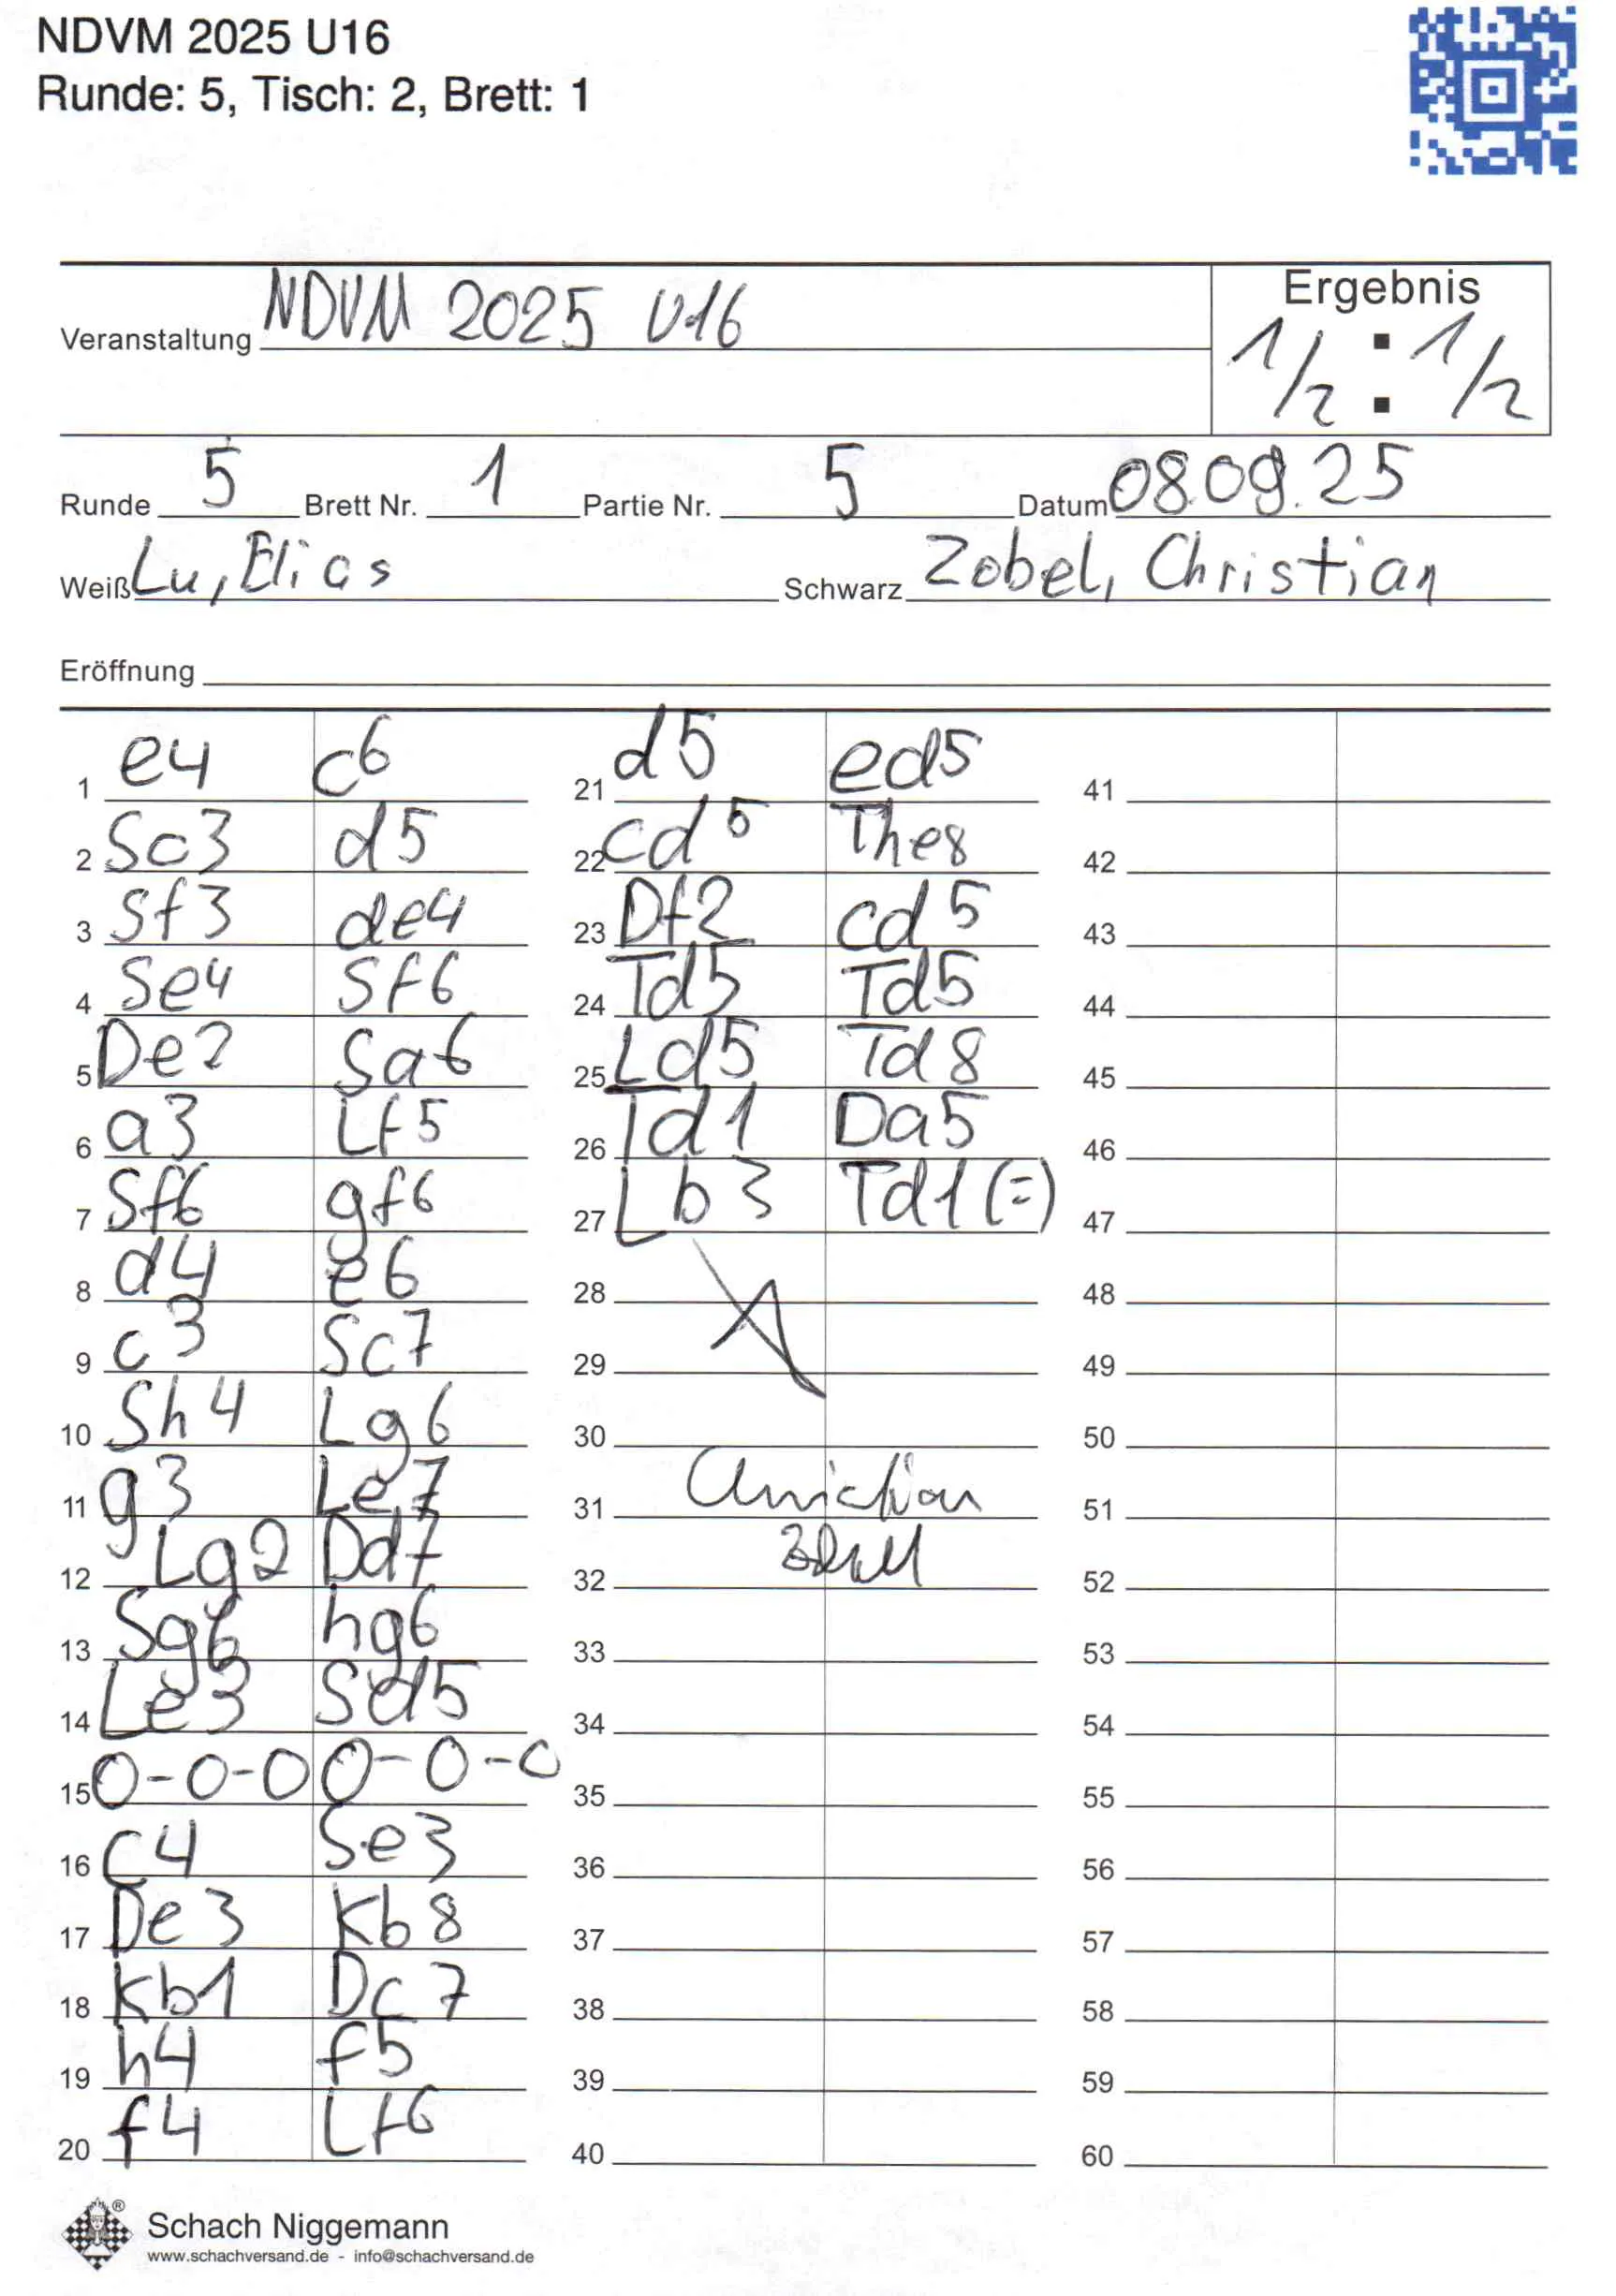 NDVM 2025 U16
Runde: 5, Tisch: 2, Brett: 1
Veranstaltung NDVM 2025 U16
Ergebnis
1/2 : 1/2
Runde 5 Brett Nr. 1 Partie Nr. 5 Datum 08.09.25
Weiß Lu, Elias Schwarz Zobel, Christian
Eröffnung
1 e4 c6
2 Sc3 d5
3 Sf3 de4
4 Se4 Sf6
5 De2 Sa6
6 a3 Lf5
7 Sf6 gf6
8 d4 e6
9 c3 Sc7
10 Sh4 Lg6
11 g3 Le7
12 Lg2 Dd7
13 Sg6 hg6
14 Le3 Sd5
15 0-0-0 0-0-0
16 c4 Se3
17 De3 Kb8
18 Kb1 Dc7
19 h4 f5
20 f4 Lf6
21 d5 ed5
22 cd5 The8
23 Df2 cd5
24 Td5 Td5
25 Ld5 Td8
26 Td1 Da5
27 Lb3 Td1 (=)
28
29
30
31 Christian
32
33
34
35
36
37
38
39
40
41
42
43
44
45
46
47
48
49
50
51
52
53
54
55
56
57
58
59
60
® Schach Niggemann
www.schachversand.de - info@schachversand.de